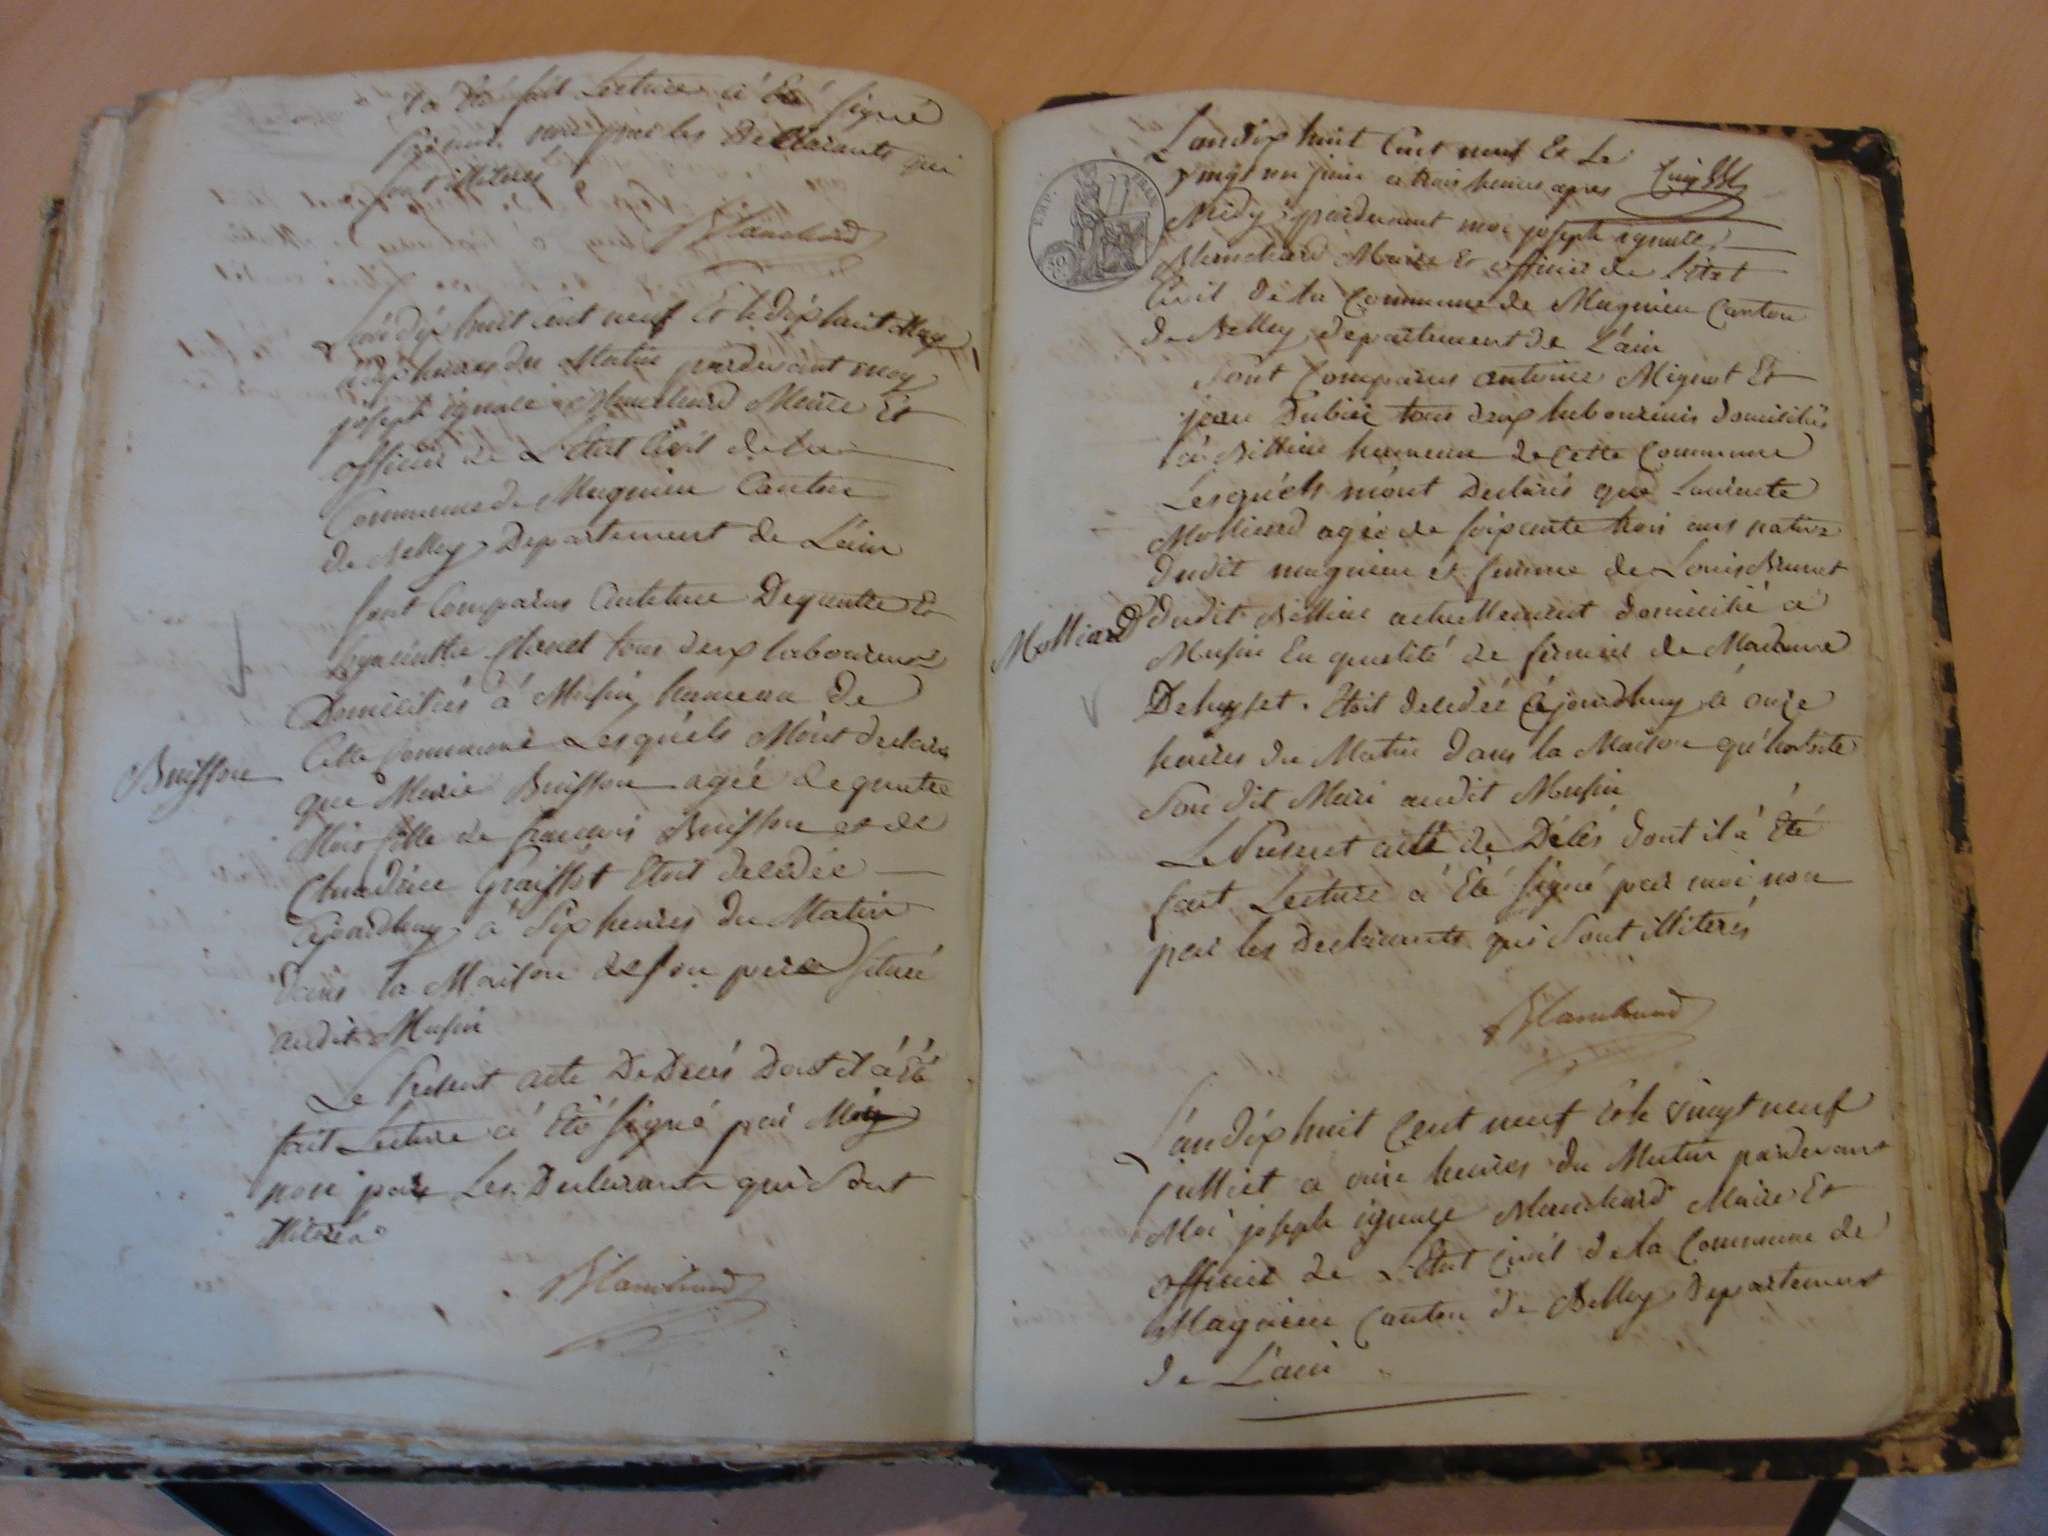 a été fait Lecture a été signé
par moi non par les Declarants qui
sont illiterés
Blanchard
L'an dix huit cent neuf Et le dix huit May
à dix heures du Matin pardevant moy
joseph ignace Blanchard Maire Et
officier de L'Etat Civil de la
Commune de Magnieu Canton
de Belley Departement de L'ain
sont Comparus Dequatre Et
hyacinthe tous deux laboureurs
Domiciliés à Musin hameau de
Cette commune Lesquels M'ont declarés
Buisson
que Marie Buisson agée de quatre
Mois fille de francois Buisson et de
Claudine Etoit decedée
Ajourdhuy à Six heures du Matin
dans la Maison de son pere Située
audit Musin
Le Present acte De Decés Dont il a été
fait Lecture a été signé par Moy
non par Les Declarants qui Sont
illiterés
Blanchard
EMP. FRAN
L'an dix huit Cent neuf Et Le
vingt un juin a trois heures apres
Midy pardevant moi joseph ignace
Blanchard Maire Et officier de l'état
Civil de la Commune de Magnieu Canton
de Belley departement de L'ain
Sont Comparus antoine Mignot Et
jean Dubier tous deux laboureurs domiciliés
à Billieu hameau de cette Commune
Lesquels m'ont Declarés que
Molliard agée de soixante trois ans native
dudit magnieu et femme de Louis Brunet
Molliard
dudit Billieu actuellement domicilié a
Musin En qualité de fermier de Madame
Etoit decedée Ajourdhuy à onze
heures du Matin dans la Maison qu'habite
Son dit Mari audit Musin
Le Present acte de Décés dont il a Eté
fait Lecture a été signé par moi non
par les Declarants qui Sont illiterés
Blanchard
L'an dix huit Cent neuf Et le vingt neuf
juilliet a onze heures du Matin pardevant
Moi joseph ignace Blanchard Maire Et
officier de L'Etat Civil de la Commune de
Magnieu Canton de Belley Departement
de L'ain